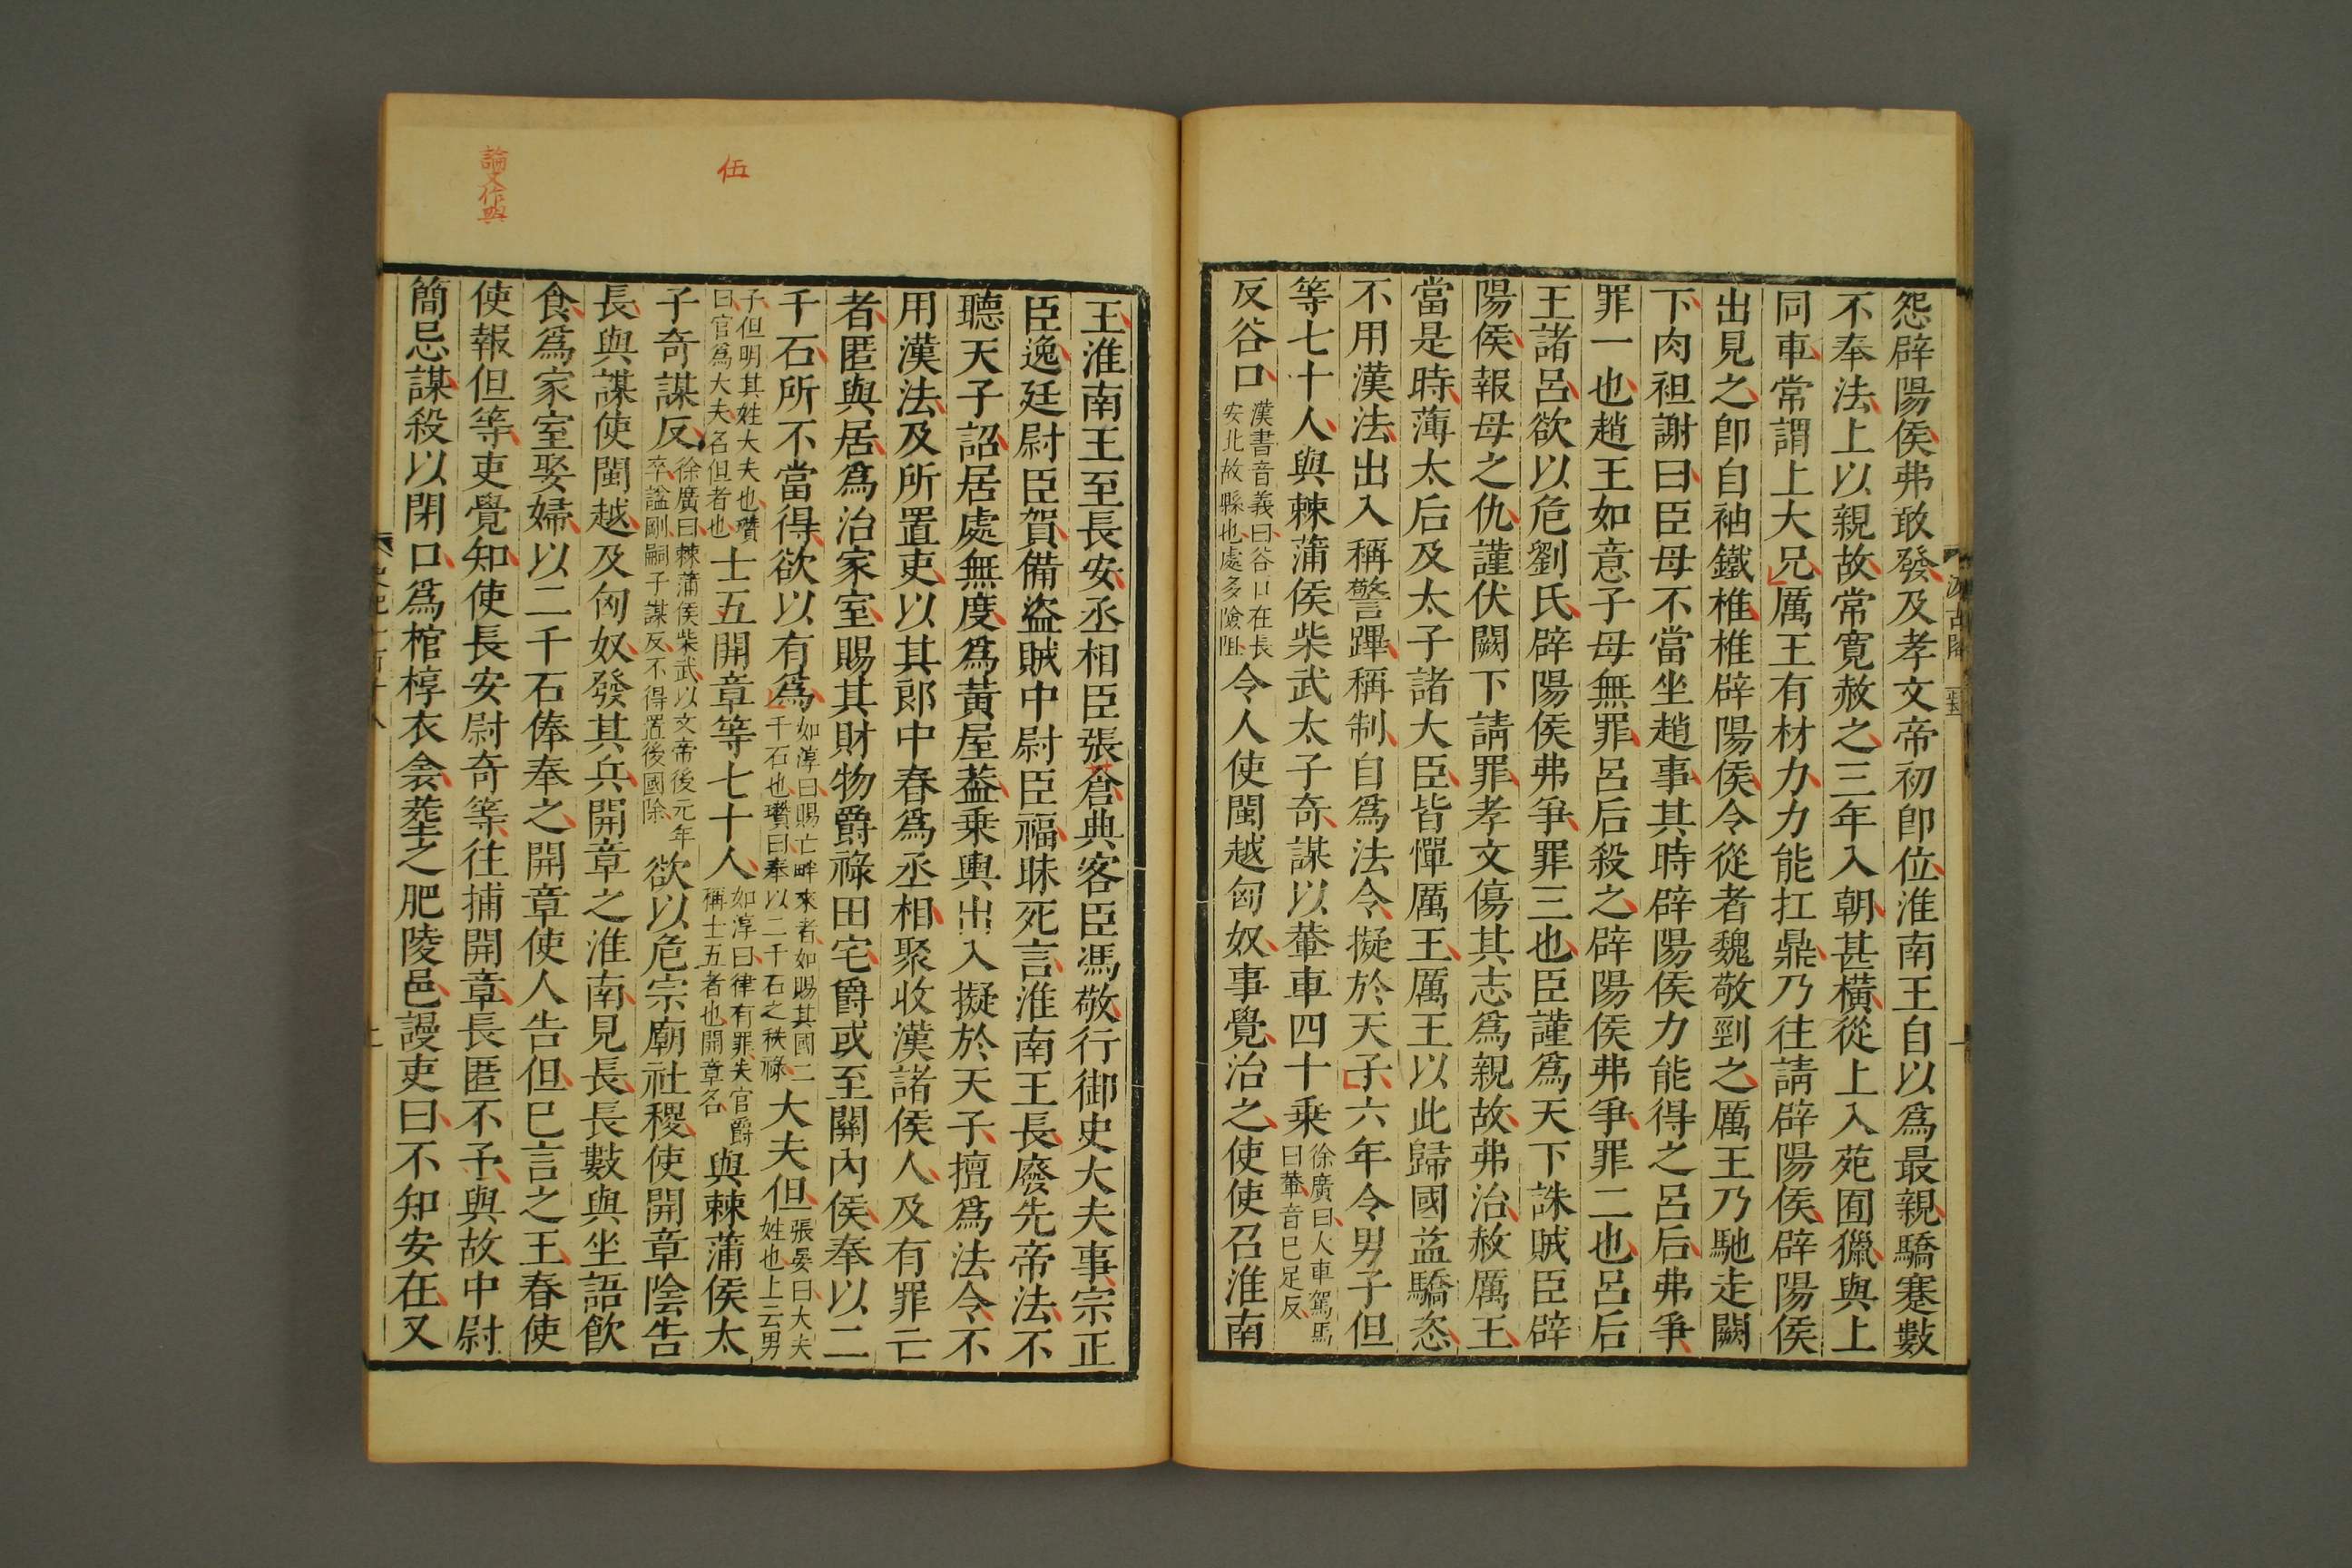 怨辟陽侯弗敢發及孝文帝初卽位淮南王自以爲最親驕蹇數
不奉法上以親故常寬赦之三年入朝甚橫從上入苑囿獵與上
同車常謂上大兄厲王有材力力能扛鼎乃往請辟陽侯辟陽侯
出見之卽自袖鐵椎椎辟陽侯令從者魏敬剄之厲王乃馳走闕
下肉袒謝曰臣母不當坐趙事其時辟陽侯力能得之呂后弗爭
罪一也趙王如意子母無罪呂后殺之辟陽侯弗爭罪二也呂后
王諸呂欲以危劉氏辟陽侯弗爭罪三也臣謹爲天下誅賊臣辟
陽侯報母之仇謹伏闕下請罪孝文傷其志爲親故弗治赦厲王
當是時薄太后及太子諸大臣皆憚厲王厲王以此歸國益驕恣
不用漢法出入稱警蹕稱制自爲法令擬於天子六年令男子但
等七十人與棘蒲侯柴武太子奇謀以輂車四十乘
徐廣曰大車駕馬
曰輂音已足反
反谷口
漢書音義曰谷口在長
安北故縣也處多險阻
令人使閩越匈奴事覺治之使使召淮南
汲古閣
伍
論文作與
王淮南王至長安丞相臣張倉典客臣馮敬行御史大夫事宗正
臣逸廷尉臣賀備盜賊中尉臣福昧死言淮南王長廢先帝法不
聽天子詔居處無度爲黃屋蓋乘輿出入擬於天子擅爲法令不
用漢法及所置吏以其郎中春爲丞相聚收漢諸侯人及有罪亡
者匿與居爲治家室賜其財物爵祿田宅爵或至關內侯奉以二
千石所不當得欲以有爲
如淳曰賜亡畔來者如賜其國二
千石也瓚曰奉以二千石之秩祿
大夫但
張晏曰大夫
姓也上云男
子但明其姓大夫也瓚
曰官爲大夫名但者也
士五開章等七十人
如淳曰律有罪失官爵
稱士五者也開章名
與棘蒲侯太
子奇謀反
徐廣曰棘蒲侯柴武以文帝後元年
卒謚剛嗣子謀反不得置後國除
欲以危宗廟社稷使開章陰告
長與謀使閩越及匈奴發其兵開章之淮南見長長數與坐語飮
食爲家室娶婦以二千石俸奉之開章使人告但已言之王春使
使報但等吏覺知使長安尉奇等往捕開章長匿不予與故中尉
簡忌謀殺以閉口爲棺椁衣衾葬之肥陵邑謾吏曰不知安在又